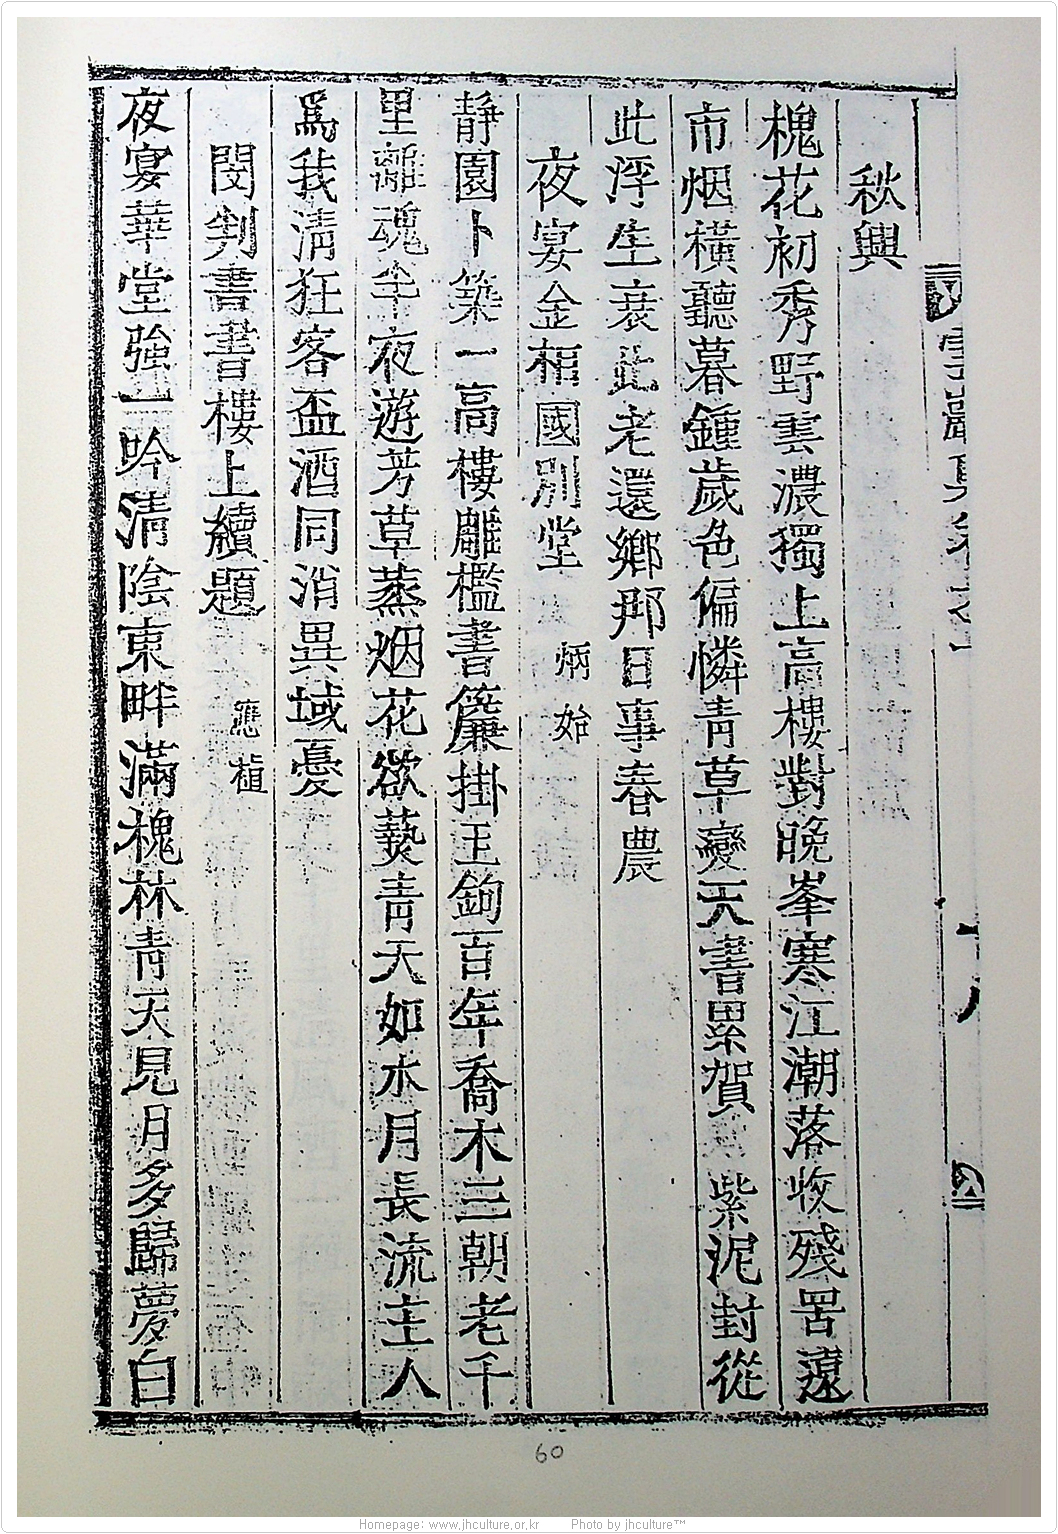 秋興
槐花初秀野雲濃獨上高樓對晩峯寒江潮落收殘罟遠
市烟橫聽暮鍾歲色偏憐靑草變天書累賀紫泥封從
此浮生衰此老還鄕那日事春農
夜宴金相國別堂 炳始
靜園卜築一高樓雕檻書簾掛玉鉤百年喬木三朝老千
里離魂半夜遊芳草蒸烟花欲爇靑天如水月長流主人
爲我淸狂客盃酒同消異域憂
閔判書書樓上續題 應植
夜宴華堂強一吟淸陰東畔滿槐林靑天見月多歸夢白
60
Homepage: www.jhculture.or.kr Photo by jhculture™